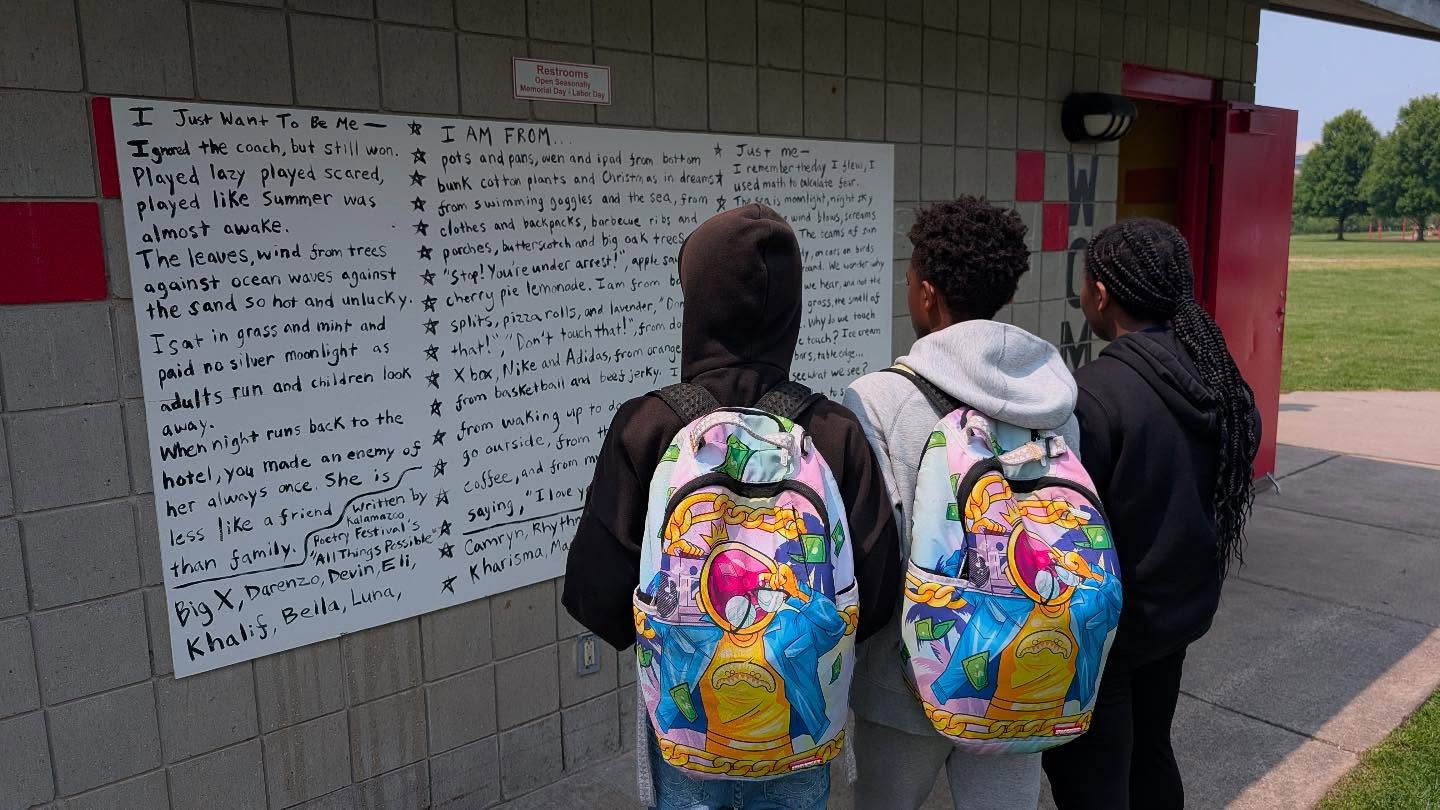 Restrooms
Open Seasonally
Memorial Day - Labor Day
I Just Want To Be Me—
Ignored the coach, but still won.
Played lazy played scared,
played like Summer was
almost awake.
The leaves, wind from trees
against ocean waves against
the sand so hot and unlucky.
I sat in grass and mint and
paid no silver moonlight as
adults run and children look
away.
When night runs back to the
hotel, you made an enemy of
her always once. She is
less like a friend
than family.
Written by
Kalamazoo
Poetry Festival's
"All Things Possible"
Big X, Darenzo, Devin, Eli,
Khalif, Bella, Luna,
I AM FROM...
pots and pans, oven and ipad from bottom
bunk cotton plants and Christmas in dreams
from swimming goggles and the sea, from
clothes and backpacks, barbecue ribs and
porches, butterscotch and big oak trees
"Stop! You're under arrest!", apple
cherry pie lemonade. I am from
splits, pizza rolls, and lavender,
that!", "Don't touch that!", from
Xbox, Nike and Adidas, from orange
from basketball and beef jerky. I
from waking up to
go outside, from
coffee, and from my
saying, "I love
Camryn, Rhythm
Kharisma,
Just me—
I remember the day I flew, I
used math to calculate fear.
The sea is moonlight, night sky
wind blows, screams
The teams of sun
on cars on birds
We wonder why
we hear, and not the
grass, the smell of
Why do we touch
touch? Ice cream
bars, table edge...
see what we see?
to
WOM